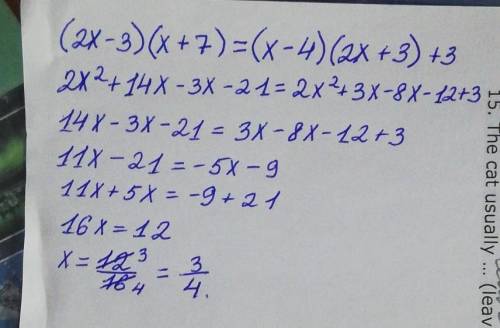 (2x-3)(x+7)=(x-4)(2x+3)+3
2x²+14x-3x-21=2x²+3x-8x-12+3
14x-3x-21=3x-8x-12+3
11x-21=-5x-9
11x+5x=-9+21
16x=12
x=12³/16₄=3/4.
15. The cat usually ... (leav